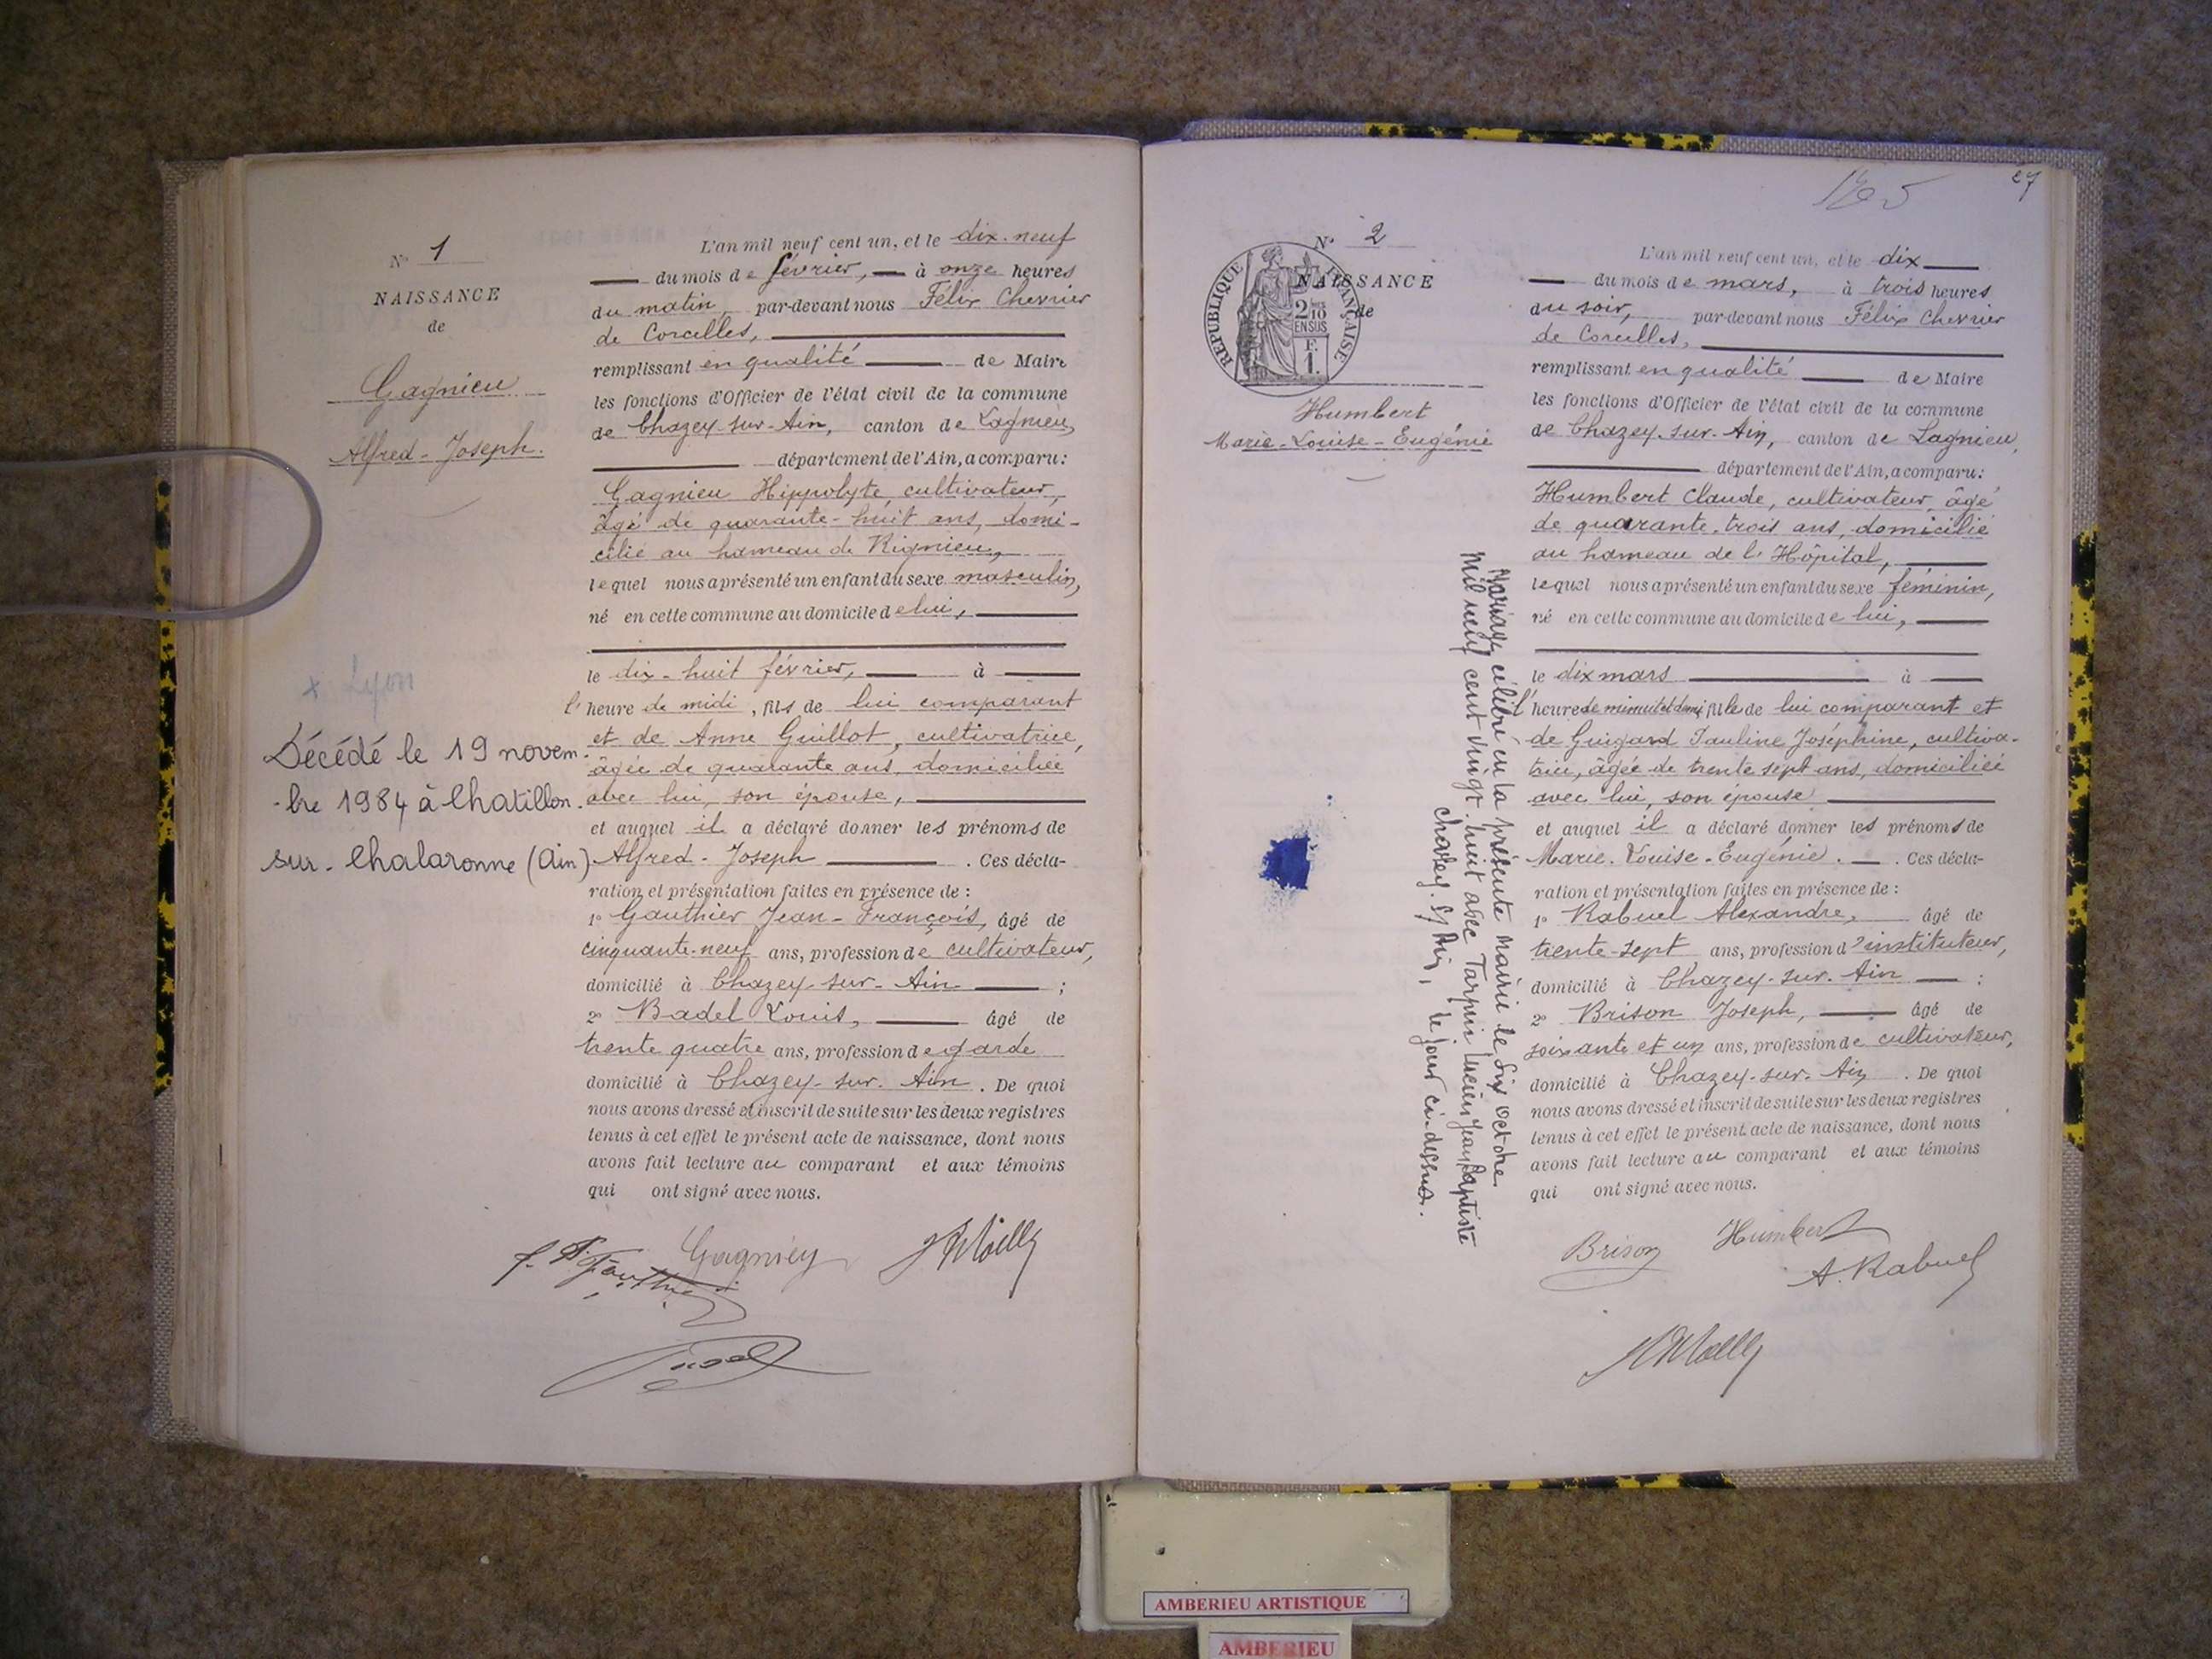 N° 1
NAISSANCE
de
Gagnieu
Alfred-Joseph.
+ Lyon
Décédé le 19 novem-
-bre 1984 à Chatillon-
sur-Chalaronne (Ain)
L'an mil neuf cent un, et le dix-neuf
du mois de février, à onze heures
du matin, par-devant nous Félix Chevrier
de Corcelles,
remplissant en qualité de Maire
les fonctions d'Officier de l'état civil de la commune
de Chazey-sur-Ain, canton de Lagnieu,
département de l'Ain, a comparu:
Gagnieu Hippolyte, cultivateur,
âgé de quarante-huit ans, domi-
cilié au hameau de Rignieu,
lequel nous a présenté un enfant du sexe masculin,
né en cette commune au domicile de lui,
le dix-huit février, à
l'heure de midi, fils de lui comparant
et de Anne Guillot, cultivatrice,
âgée de quarante ans, domiciliée
avec lui, son épouse,
et auquel il a déclaré donner les prénoms de
Alfred-Joseph. Ces décla-
ration et présentation faites en présence de:
1° Gauthier Jean-François, âgé de
cinquante-neuf ans, profession de cultivateur,
domicilié à Chazey-sur-Ain;
2° Badel Louis, âgé de
trente quatre ans, profession de garde
domicilié à Chazey-sur-Ain. De quoi
nous avons dressé et inscrit de suite sur les deux registres
tenus à cet effet le présent acte de naissance, dont nous
avons fait lecture au comparant et aux témoins
qui ont signé avec nous.
Gagnieu
27
N° 2
NAISSANCE
de
REPUBLIQUE FRANÇAISE
2/10 EN SUS
F. 1.
Humbert
Marie-Louise-Eugénie
Mariage célébré en la présente mairie le six octobre
mil neuf cent vingt huit avec Tarpin Lucien Jean Baptiste
Chazey-s/Ain, le jour ci-dessus.
L'an mil neuf cent un, et le dix
du mois de mars, à trois heures
du soir, par-devant nous Félix Chevrier
de Corcelles,
remplissant en qualité de Maire
les fonctions d'Officier de l'état civil de la commune
de Chazey-sur-Ain, canton de Lagnieu,
département de l'Ain, a comparu:
Humbert Claude, cultivateur, âgé
de quarante-trois ans, domicilié
au hameau de l'Hôpital,
lequel nous a présenté un enfant du sexe féminin,
né en cette commune au domicile de lui,
le dix mars à
l'heure de minuit et demi fille de lui comparant et
de Guigard Pauline Joséphine, cultiva-
trice, âgée de trente sept ans, domiciliée
avec lui, son épouse
et auquel il a déclaré donner les prénoms de
Marie-Louise-Eugénie. Ces décla-
ration et présentation faites en présence de:
1° Rabuel Alexandre, âgé de
trente-sept ans, profession d'instituteur,
domicilié à Chazey-sur-Ain:
2° Brison Joseph, âgé de
soixante et un ans, profession de cultivateur,
domicilié à Chazey-sur-Ain. De quoi
nous avons dressé et inscrit de suite sur les deux registres
tenus à cet effet le présent acte de naissance, dont nous
avons fait lecture au comparant et aux témoins
qui ont signé avec nous.
Brison Humbert
A. Rabuel
AMBERIEU ARTISTIQUE
AMBERIEU